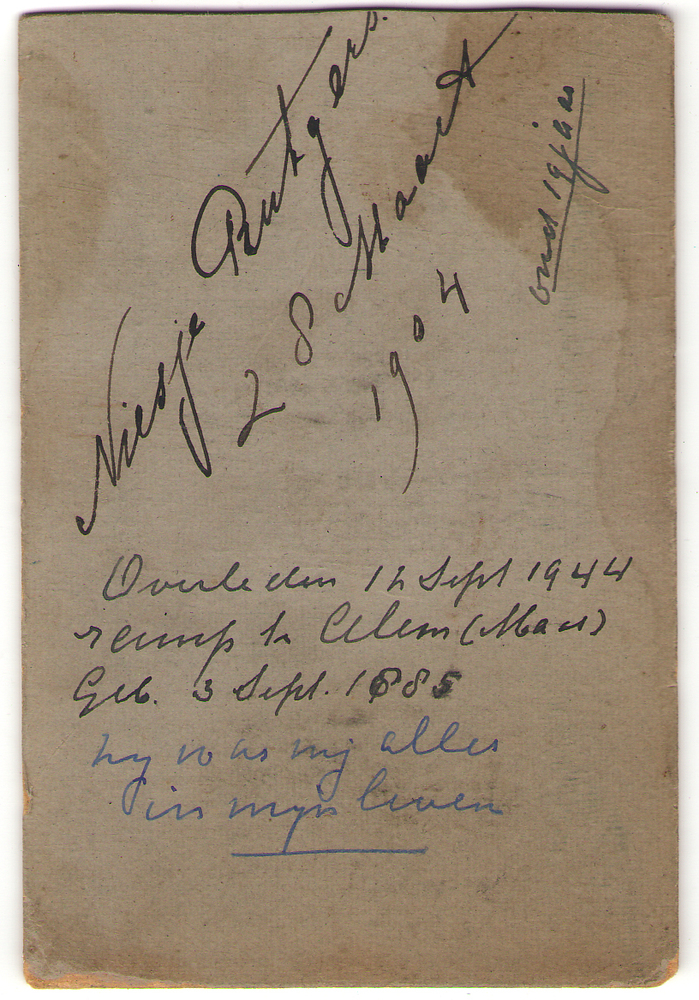 Niesje Rutgers.
28 Maart
1904
oud 19 jaar
Overleden 12 Sept 1944
te Alem (Maas)
Geb. 3 Sept. 1885
hy was mij alles
in mijn leven